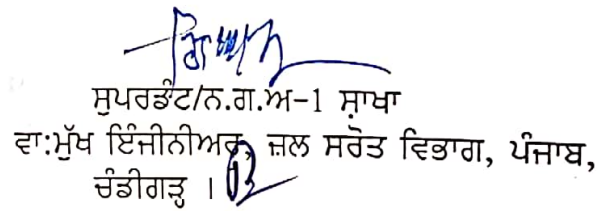 ਸੁਪਰਡੰਟ/ਨ.ਗ.ਅ-1 ਸ਼ਾਖਾ
ਵਾ:ਮੁੱਖ ਇੰਜੀਨੀਅਰ, ਜ਼ਲ ਸਰੋਤ ਵਿਭਾਗ, ਪੰਜਾਬ,
ਚੰਡੀਗੜ੍ਹ ।